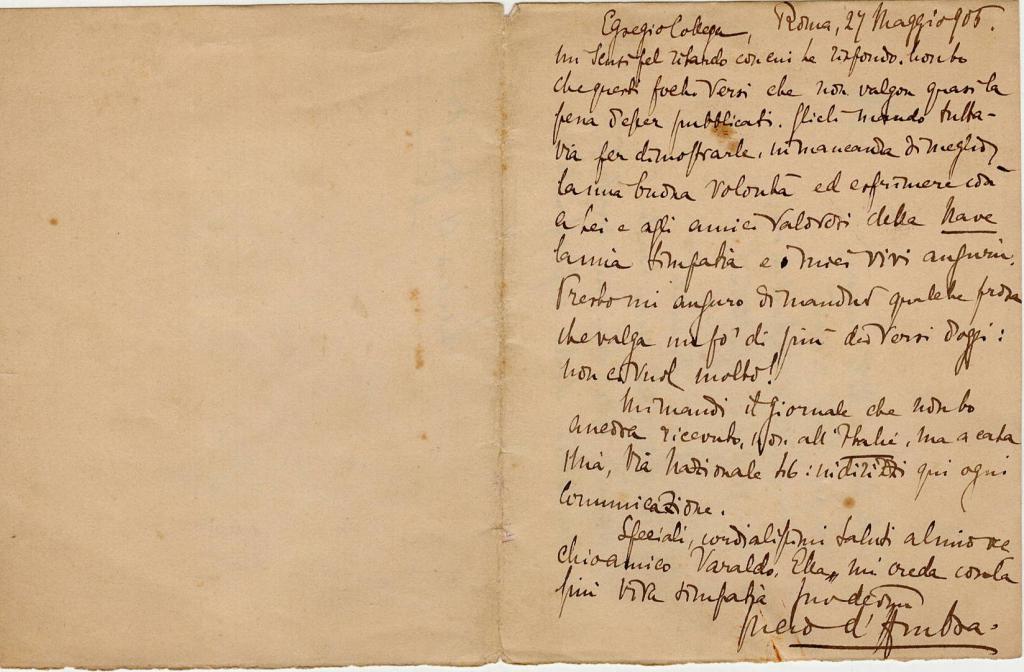 Egregio Collega, Roma, 27 Maggio 905.
mi scusi pel ritardo con cui le rispondo. non ho
che questi pochi versi che non valgon quasi la
pena d'esser pubblicati. Glieli mando tutta-
via per dimostrarle, in mancanza di meglio,
la mia buona volontà ed esprimere così
a Lei e agli amici valorosi della Nave
la mia simpatia e i miei vivi auguri.
Presto mi auguro di mandar qualche prosa
che valga un po' di più dei versi d'oggi:
non ci vuol molto!
Mi mandi il giornale che non ho
ancora ricevuto, non all'Italie, ma a casa
mia, Via Nazionale 46: indirizzi qui ogni
comunicazione.
Speciali, cordialissimi saluti al mio vec
chio amico Varaldo. Ella mi creda con la
più viva simpatia suo
d'Ambra.